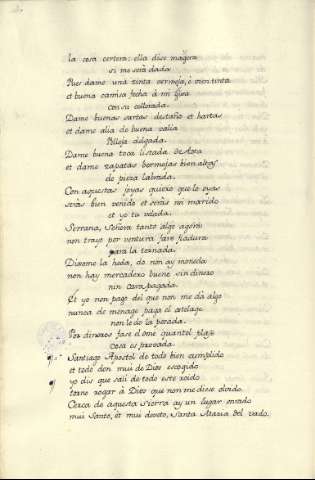 la cosa certera: ella dise maguera
si me será dada
Pues dame una cinta bermeja, é bien tinta
et buena camisa fecha á mi guisa
con su collarada.
Dame buenas sartas de staño et hartas
et dame alia de buena valia
Pelleja delgada.
Dame buena toca listada de cota
et dame zapatas bermejas bien altas
de pieza labrada.
Con aquestas joyas quiero que lo oyas
serás bien venido et serás mi marido
et yo tu velada.
Serrana, Señora tanto algo agora
non trayo por ventura fare fiadura
para la tornada.
Dixome la heda, do non ay moneda
non hay mercadero bueno sin dinero
nin cara pagada.
Et yo non pago del que non me da algo
nunca de menage paga el ostelaje
non le do la posada.
Por dineros fase el ome quantol plase
cosa es provada.
Santiago Apostol de todo bien cumplido
et todo don mui de Dios escogido
yo dis que salí de todo este roido
torne rogar á Dios que non me diese olvido.
Cerca de aquesta Sierra ay un lugar onrado
mui Santo, et mui devoto, Santa Maria del vado.